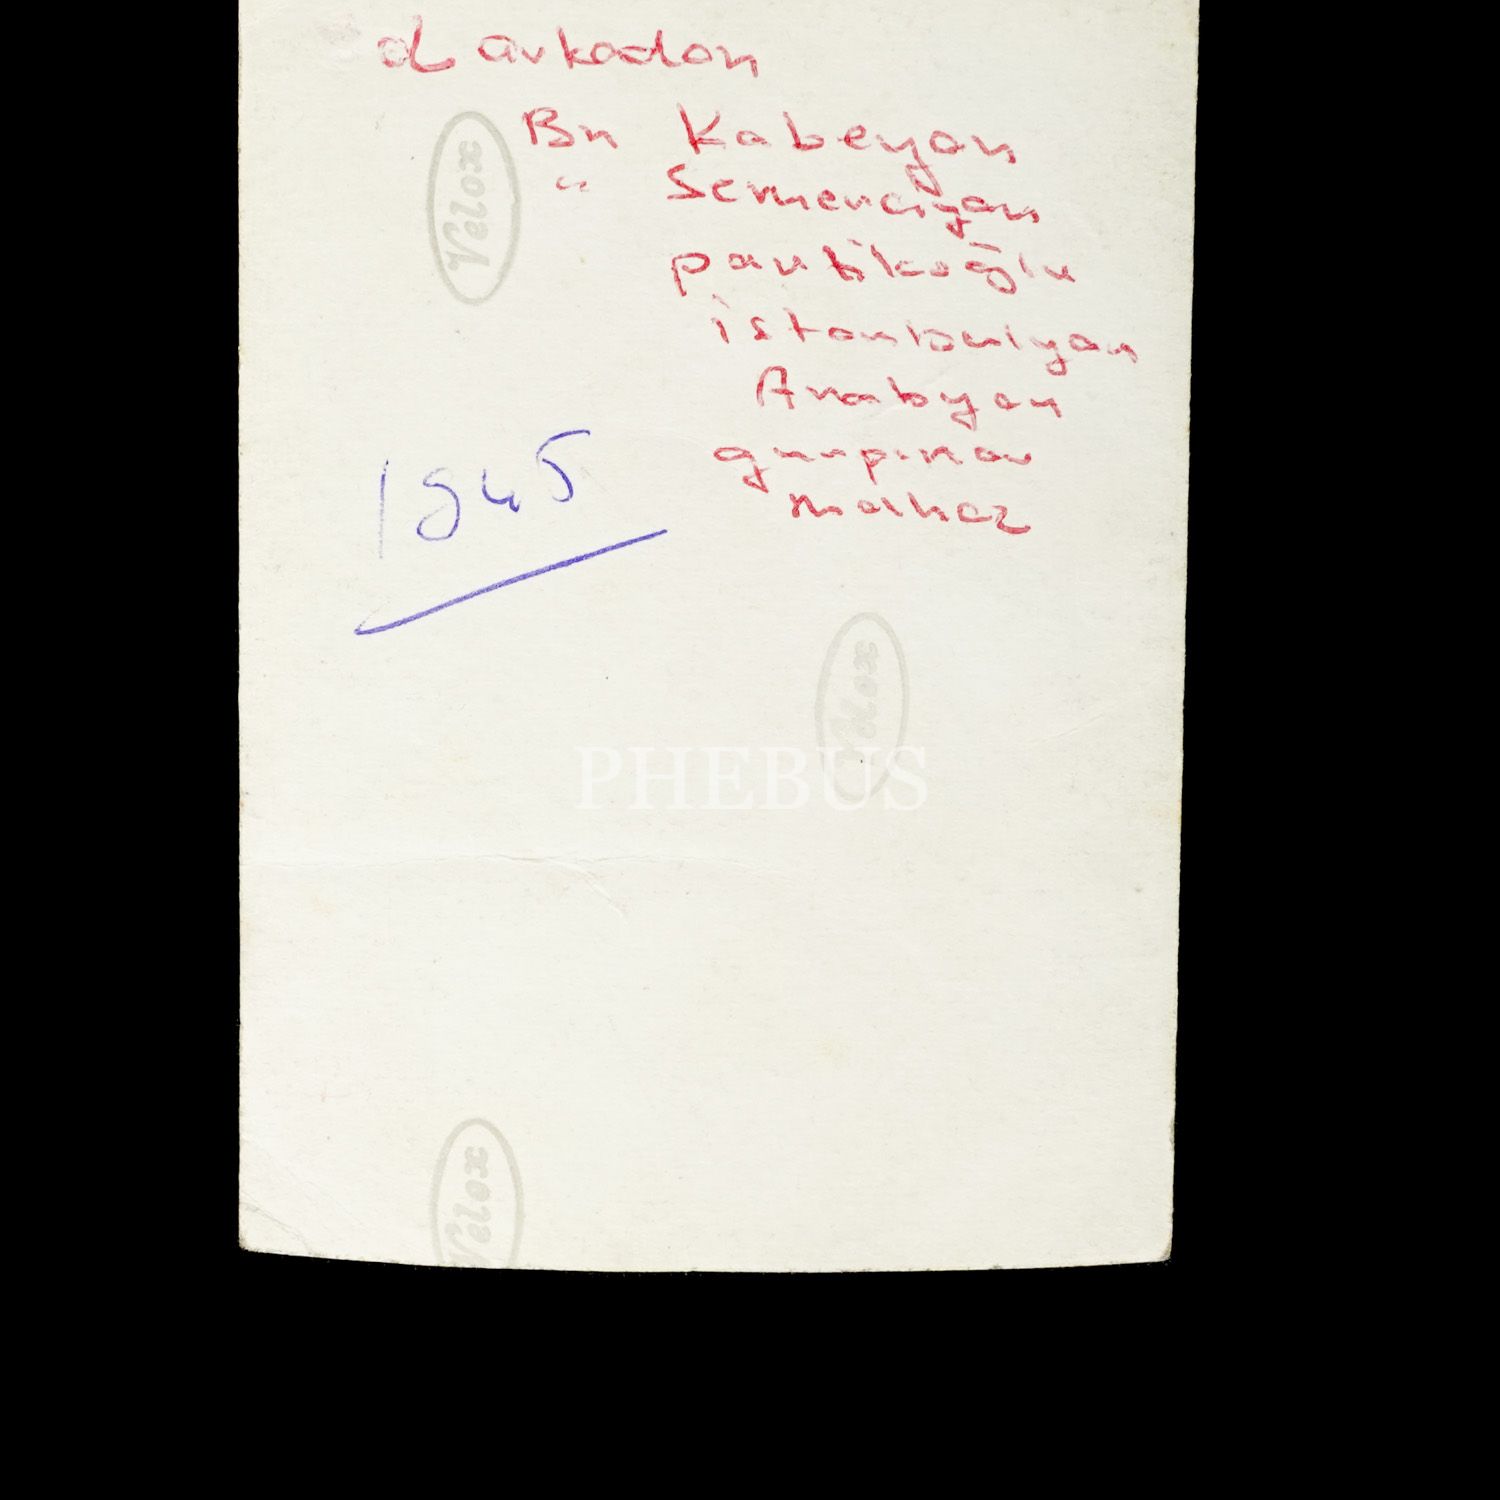 d arkadan
Bn Kabeyan
" Semerciyan
pamlıkoğlu
istanbulyan
Arabyan
gunpınar
malhaz
1945
Velox
Velox
Velox
PHEBUS